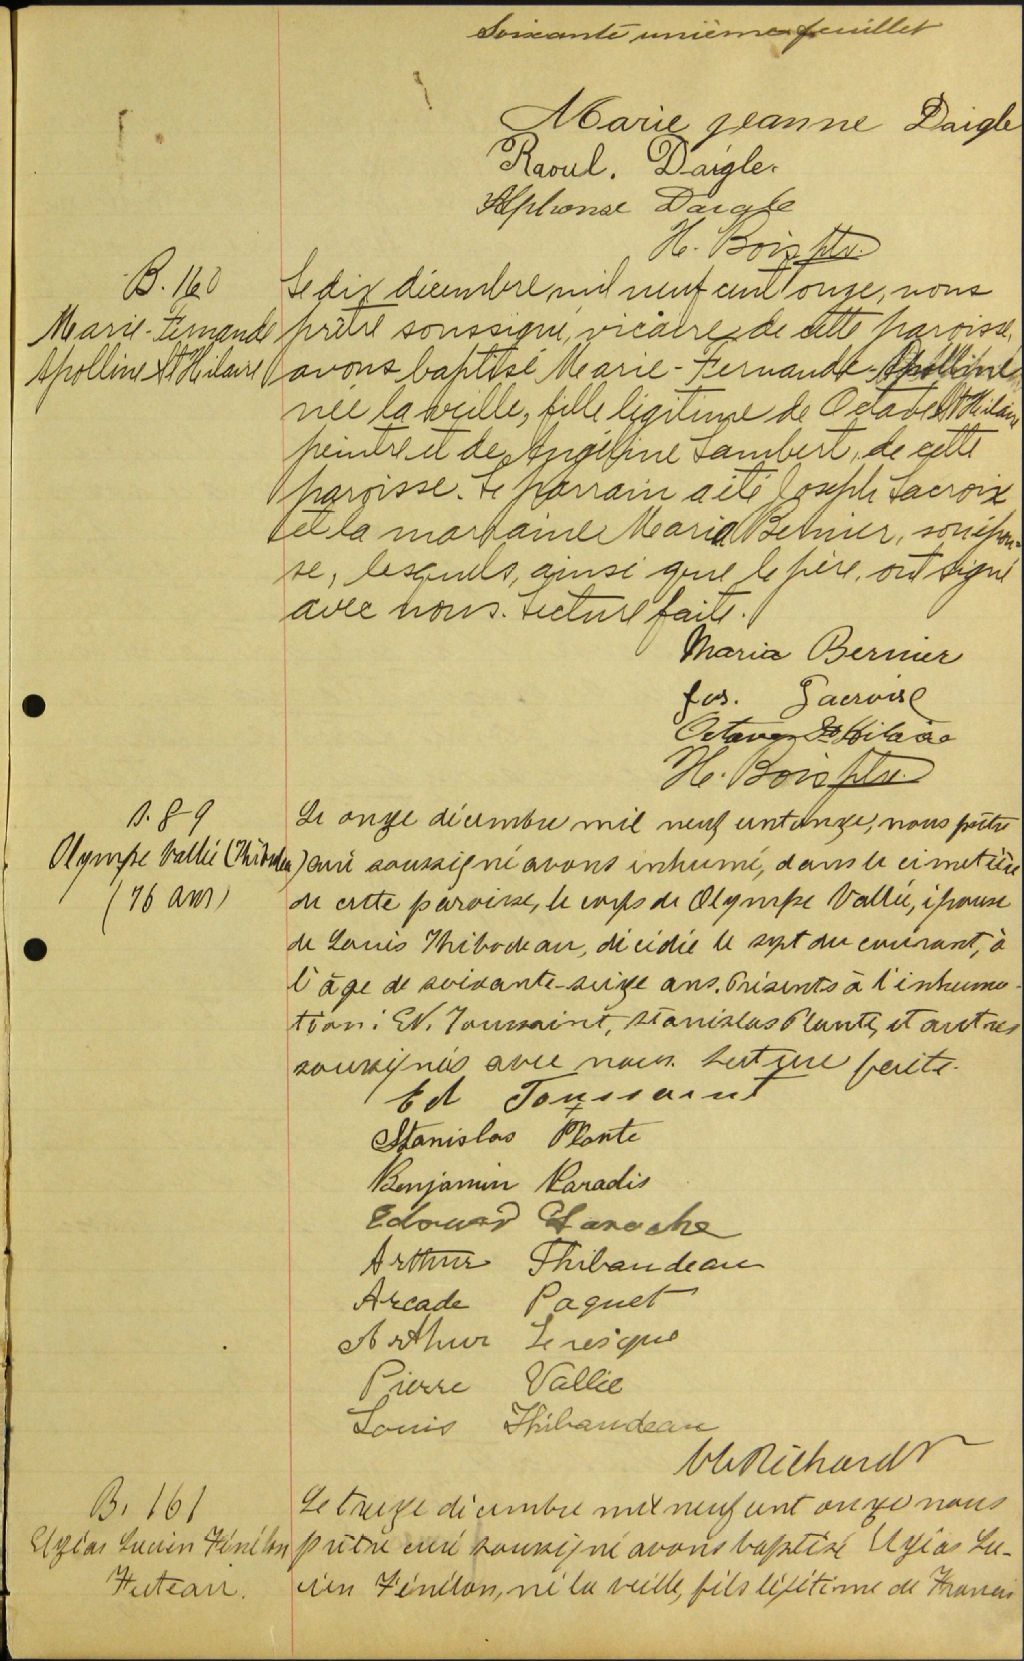 Soixante unième feuillet
Marie Jeanne Daigle
Raoul. Daigle.
Alphonse Daigle
H. Bois ptre.
B. 160
Marie-Fernande
Apolline St Hilaire
Le dix décembre mil neuf cent onze, nous
prêtre soussigné, vicaire de cette paroisse,
avons baptisé Marie-Fernande-Apolline
née la veille, fille légitime de Octave St Hilaire
peintre et de Angéline Lambert, de cette
paroisse. Le parrain a été Joseph Lacroix
et la marraine Maria Bernier, son épou-
se, lesquels, ainsi que le père, ont signé
avec nous. Lecture faite.
Maria Bernier
Jos. Lacroix
Octave St Hilaire
H. Bois ptre.
S. 89
Olympe Vallée (Thibodeau)
(76 ans)
Le onze décembre mil neuf cent onze, nous prêtre
curé soussigné avons inhumé, dans le cimetière
de cette paroisse, le corps de Olympe Vallée, épouse
de Louis Thibodeau, décédée le sept du courant, à
l'âge de soixante-seize ans. Présents à l'inhuma-
tion: Ed. Toussaint, Stanislas Plante, et autres
soussignés avec nous. Lecture faite.
Ed Toussaint
Stanislas Plante
Benjamin Paradis
Edouard Laroche
Arthur Thibaudeau
Arcade Paquet
Arthur Levesque
Pierre Vallée
Louis Thibaudeau
Richard
B. 161
Elzéar Lucien Fénélon
Huteau.
Le treize décembre mil neuf cent onze nous
prêtre curé soussigné avons baptisé Elzéar Lu-
cien Fénélon, né la veille, fils légitime de Francis